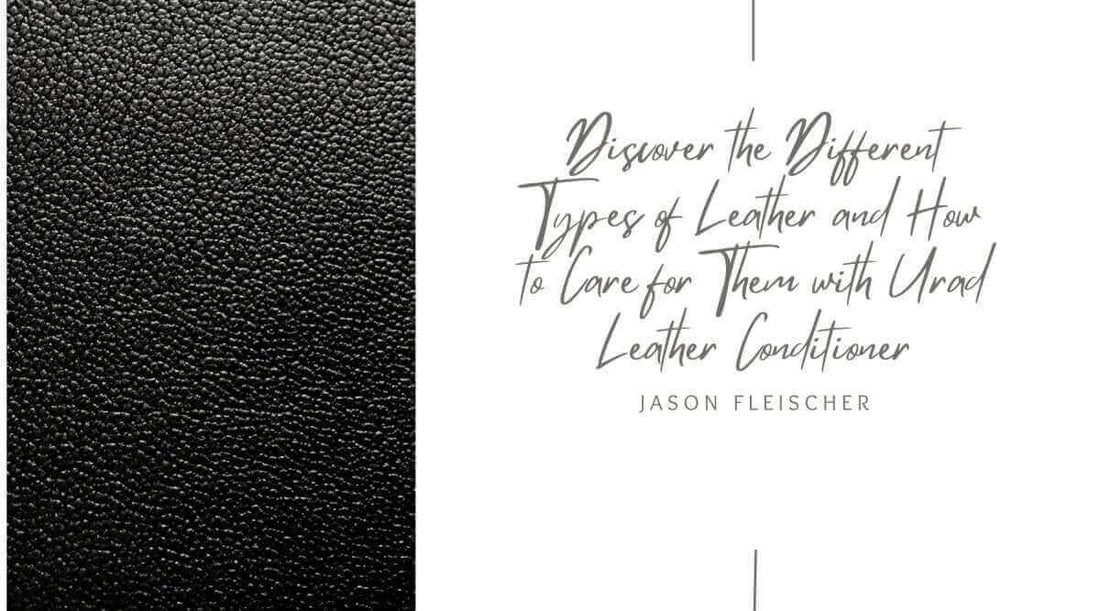 Discover the Different
Types of Leather and How
to Care for Them with Urad
Leather Conditioner
JASON FLEISCHER